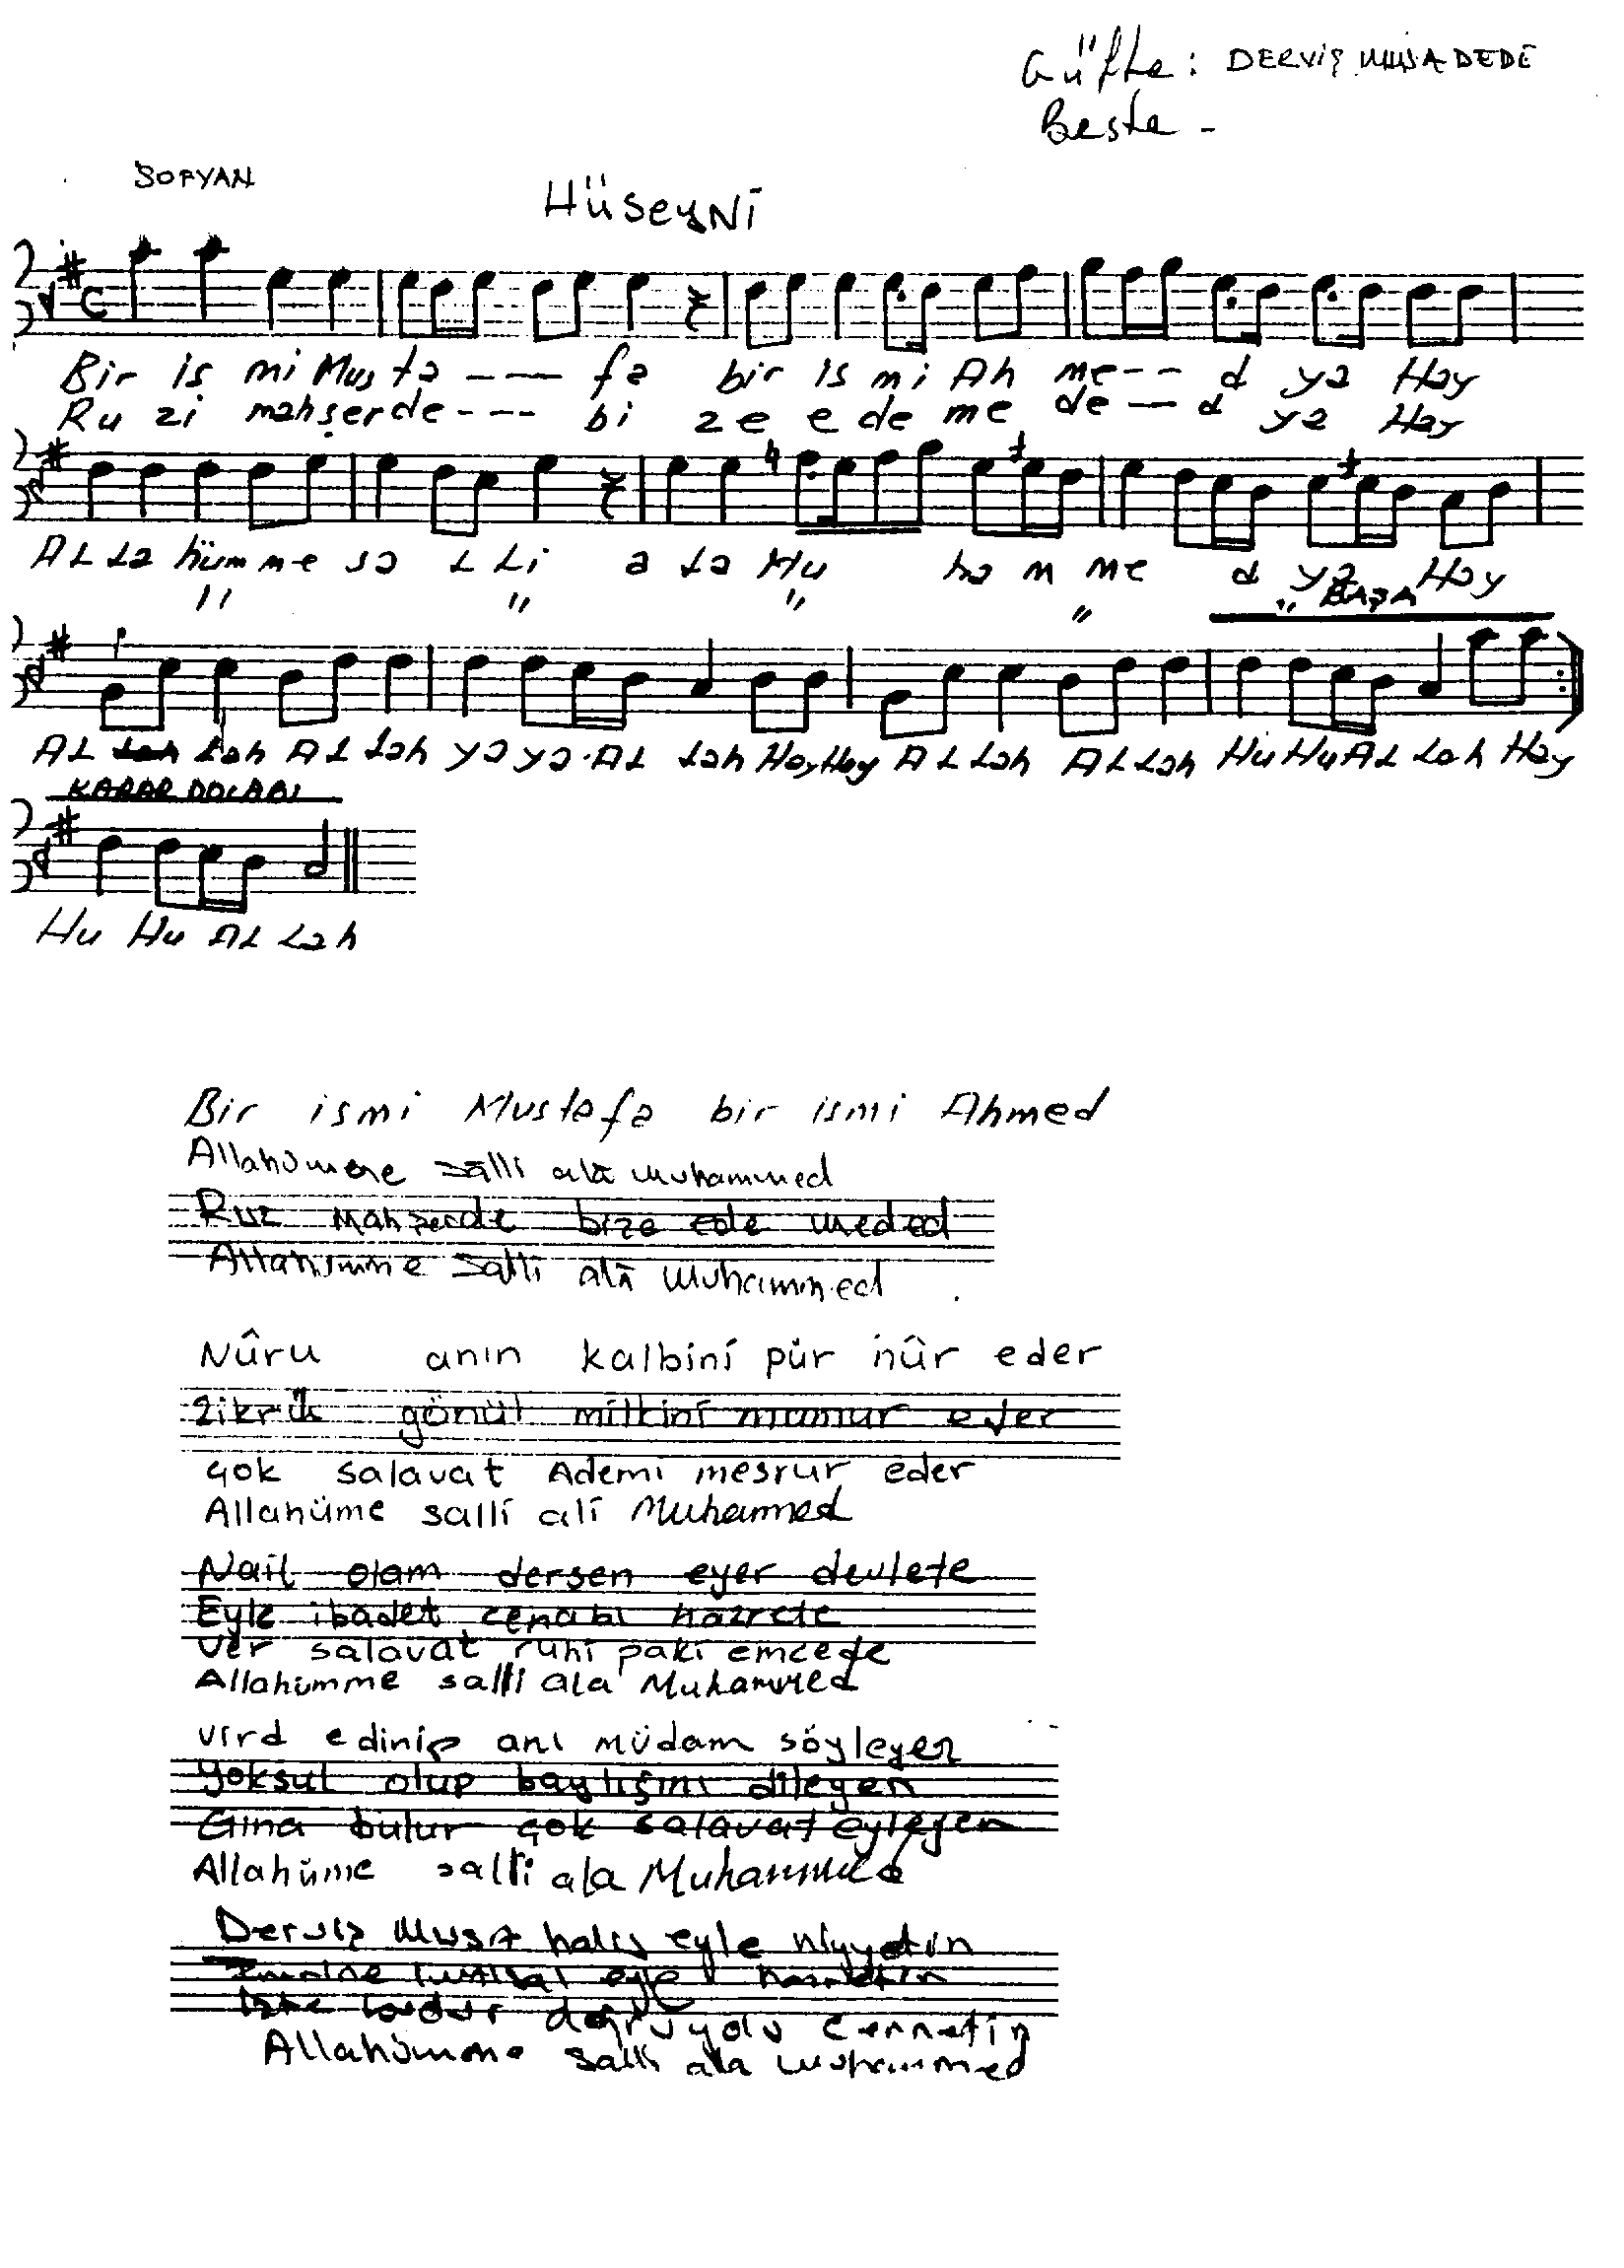 Güfte : DERVİŞ MUSA DEDE
Beste -
SOFYAN
HÜSEYNİ
Bir is mi Mus ta ---- fa bir is mi Ah me -- d ya Hay
Ru zi mahşerde ---- bi ze e de me de --- d ya Hay
AL La hüm me sa L Li a La Mu ha m me d ya Hay
" " " " " BAŞA
AL Lah AL Lah ya ya AL Lah Hay Hay AL Lah AL Lah Hu Hu AL Lah Hay
KARAR DOLABI
Hu Hu AL Lah
Bir ismi Mustafa bir ismi Ahmed
Allahümme salli alâ Muhammed
Ruz mahşerde bize ede meded
Allahümme salli alâ Muhammed
Nûru anın kalbini pür nûr eder
gönül mülkini mamur eder
Çok salavat Ademi mesrur eder
Allahüme salli ali Muhammed
Nail olam dersen eyer devlete
Eyle ibadet cenabı hazrete
Ver salavat ruhi paki emcede
Allahümme salli ala Muhammed
Vird edinip anı müdam söyleyen
Yoksul olup baylığını dileyen
Gina bulur çok salavat eyleyen
Allahüme salli ala Muhammed
Derviş Musa halis eyle niyyetin
eyle
İşte budur doğru yolu cennetin
Allahümme salli ala Muhammed